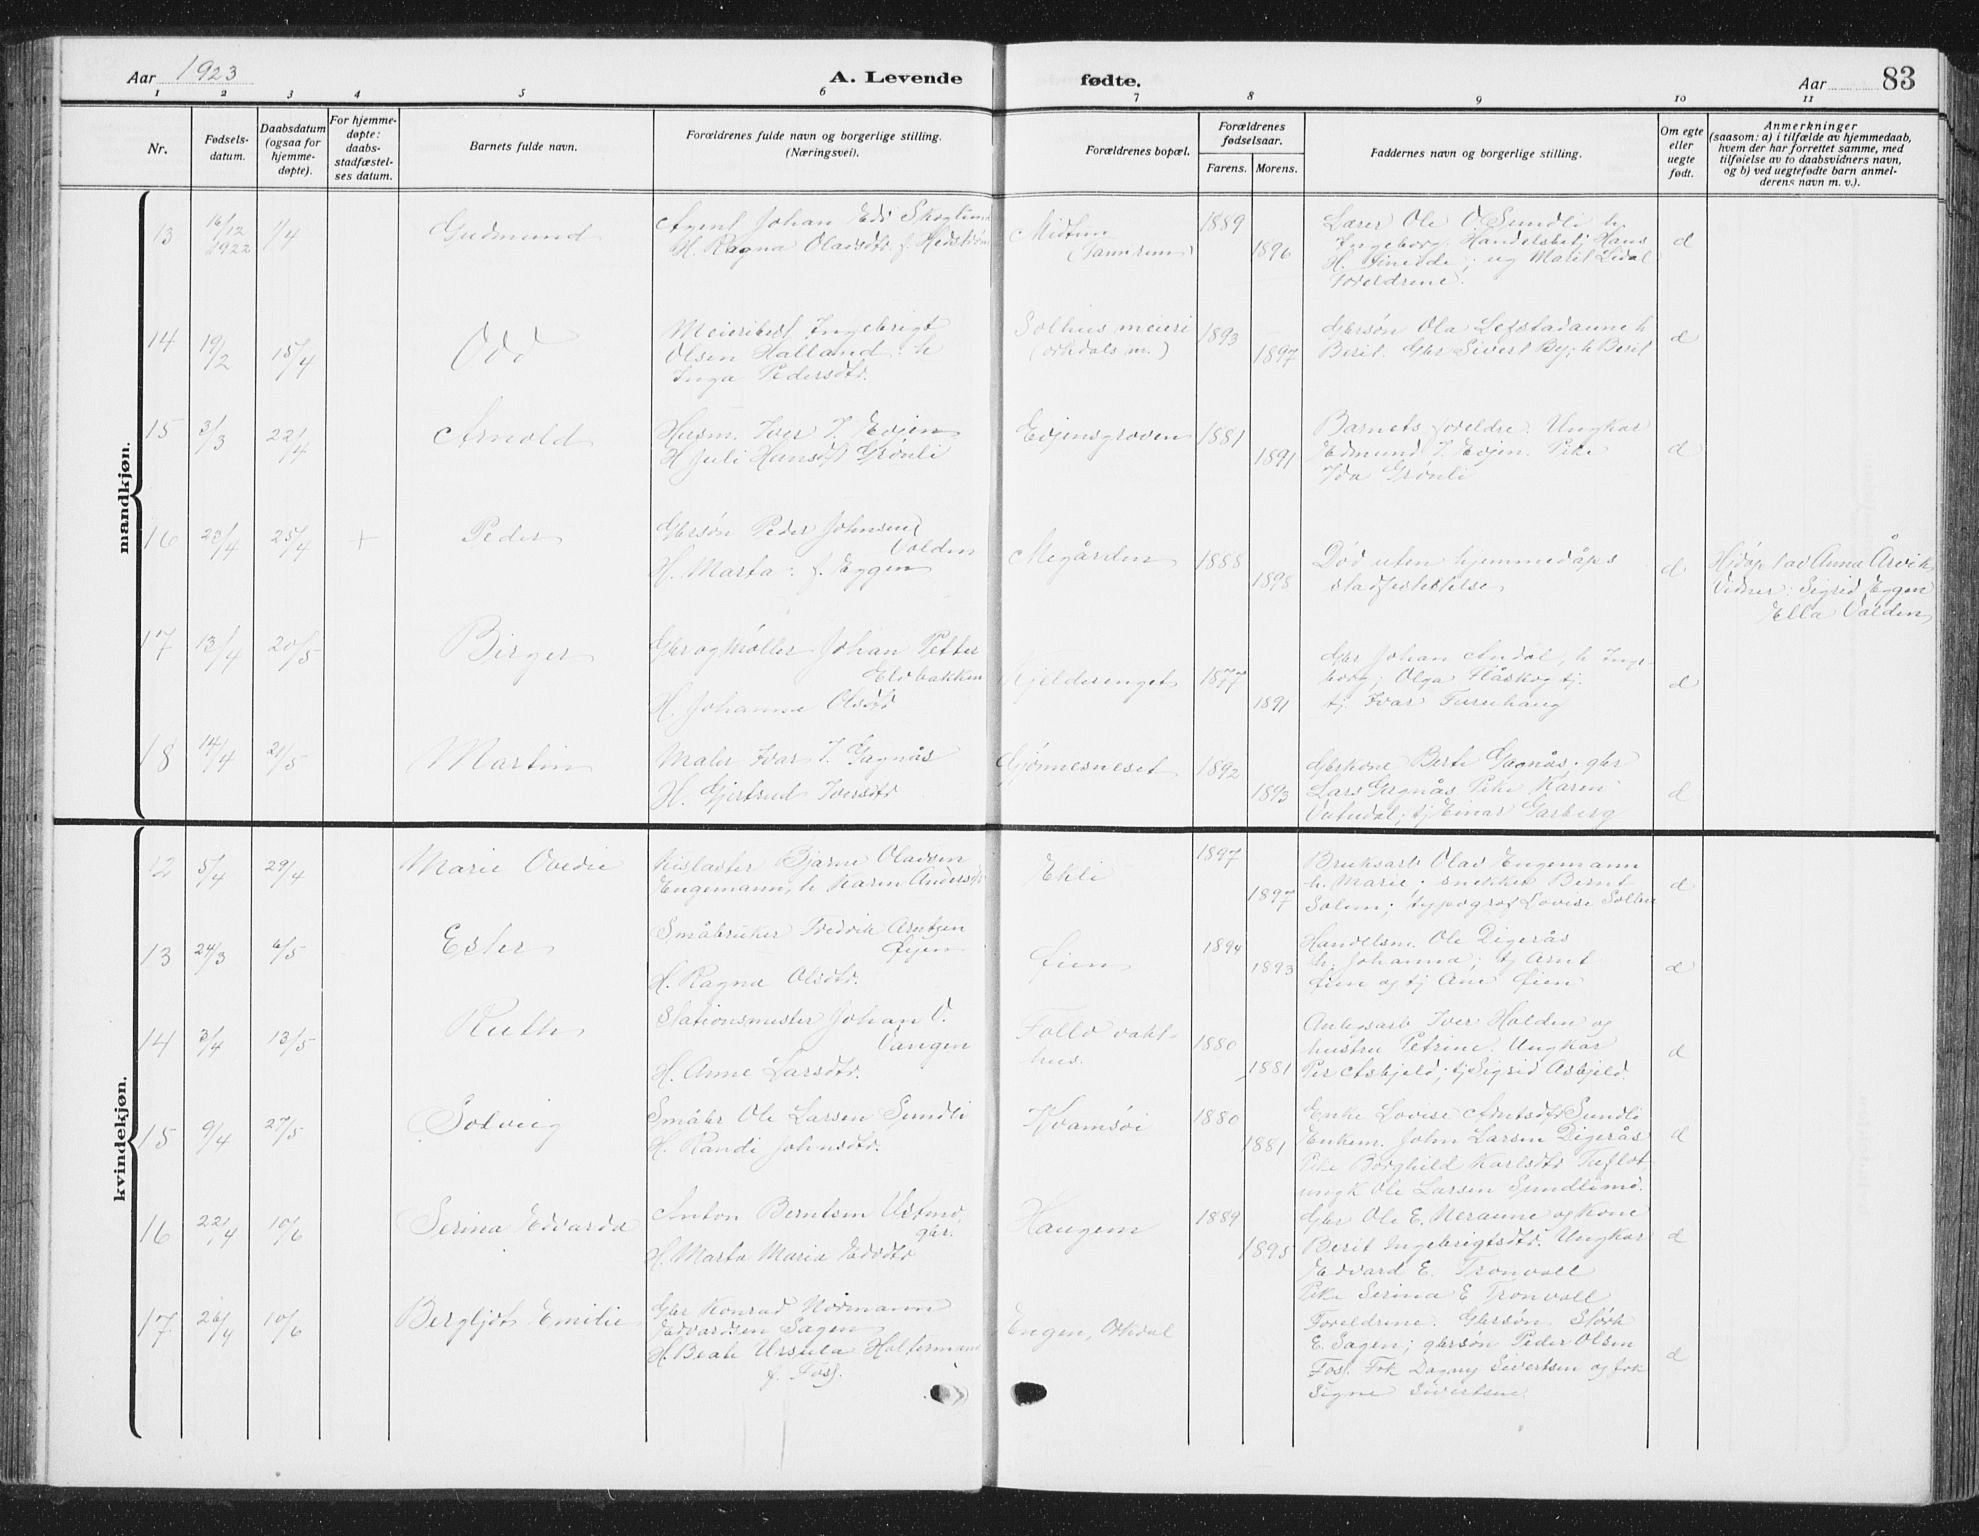 Aar 1923
A. Levende fødte.
Aar 83
1 2 3 4 5 6 7 8 9 10 11
Nr.
Fødsels-
datum.
Daabsdatum
(ogsaa for
hjemme-
døpte).
For hjemme-
døpte:
daabs-
stadfæstel-
ses datum.
Barnets fulde navn.
Forældrenes fulde navn og borgerlige stilling.
(Næringsvei).
Forældrenes bopæl.
Forældrenes
fødselsaar.
Farens. Morens.
Faddernes navn og borgerlige stilling.
Om egte
eller
uegte
født.
Anmerkninger
(saasom: a) i tilfælde av hjemmedaab,
hvem der har forrettet samme, med
tilføielse av to daabsvidners navn,
og b) ved uegtefødte barn anmel-
derens navn m. v.).
mandkjøn.
13 16/12 1922 1/4 Gudmund
Agent Johan Edv Skoglund
H. Ragna Olavsdtr f. Hedstrøm
Midtun
1889 1896
Lærer Ole O Sundli h
Ingeborg. Handelsbetj Hans
H. og Marit Lidal
Foreldrene.
d
14 19/2 15/4 Odd
Meieribest Ingebrigt
Olsen Halland. h
Inga Pedersdtr.
Solhus meieri
(Orkdals m.)
1893 1897
Gbrsøn Ola Lefstadaune h
Berit. Gbr Sivert By; h Berit
d
15 3/3 22/4 Arnold
Husm. Iver I. Evjen
H. Juli Hansdtr Grønli
Evjensgroven
1881 1891
Barnets foreldre. Ungkar
Edmund I. Evjen. Pike
Ida Grønli
d
16 23/4 25/4 + Peder
Gbrsøn Peder Johnsen
Volden
H. Marta f. Eggen
Megården
1888 1898
Død uten hjemmedåps
stadfestelse
d
Hjdøpt av Anna Årvik
Vidner: Sigrid Eggen
Ella Valden
17 13/4 20/5 Birger
Gbr og Møller Johan Petter
Elvbakken
H. Johanna Olsdtr
Kjelderenget
1877 1891
Gbr Johan Andal, h Inge-
borg; Olga Håskog tj.
tj. Ivar Furuhaug
d
18 14/4 21/5 Martin
Maler Ivar I. Gagnås
H. Gjertrud Iversdtr
Gjønnesneset
1892 1893
Gbrkone Berte Gagnås. gbr
Lars Gagnås Pike Karen
tj Einar Garberg
d
kvindekjøn.
12 5/4 29/4 Marie Ovedie
Kislaster Bjarne Olavsen
Engemann, h Karen Andersdtr
Ekli
1897 1897
Bruksarb Olav Engemann
h. Marie; snekker Bernt
Solem; typograf Lovise Solhus
d
13 24/3 6/5 Ester
Småbruker Fredrik Arntsen
Øyen
H. Ragna Olsdtr.
Øien
1894 1893
Handelsm. Ole Digerås
h. Johanna; tj Arnt
Øien og tj Ane Øien
d
14 3/4 13/5 Ruth
Stationsmester Johan O.
Vangen
H. Anne Larsdtr.
Follo vakt-
hus.
1880 1881
Anlegsarb Iver Holden og
hustru Petrine. Ungkar
Per Asbjeld; tj Sigrid Asbjeld.
d
15 9/4 27/5 Solveig
Småbr Ole Larsen Sundli
H. Randi Johnsdtr.
Kvamsøi
1880 1881
Enke Lovise Arntsdtr Sundli
Enkem. John Larsen Digerås
Pike Borghild Karlsdtr
ungk Ole Larsen
d
16 22/4 10/6 Serina Edvarda
Anton Berntsen
gbr.
H. Marta Maria Edvdtr
Haugem
1889 1895
Gbr Ole E. Neraune og kone
Berit Ingebrigtsdtr. Ungkar
Edvard E. Tronvoll
Pike Serina E Tronvoll
d
17 26/4 10/6 Bergljot Emilie
Gbr Konrad Normann
Edvardsen Sagen
H. Beate Ursula Holtermann
f. Foss.
Engen, Orkdal
Foreldrene. Gbrsøn Størk
E. Sagen; gbrsøn Peder Olsen
Foss. Frk Dagny Sivertsen og frk
Signe Sivertsen.
d